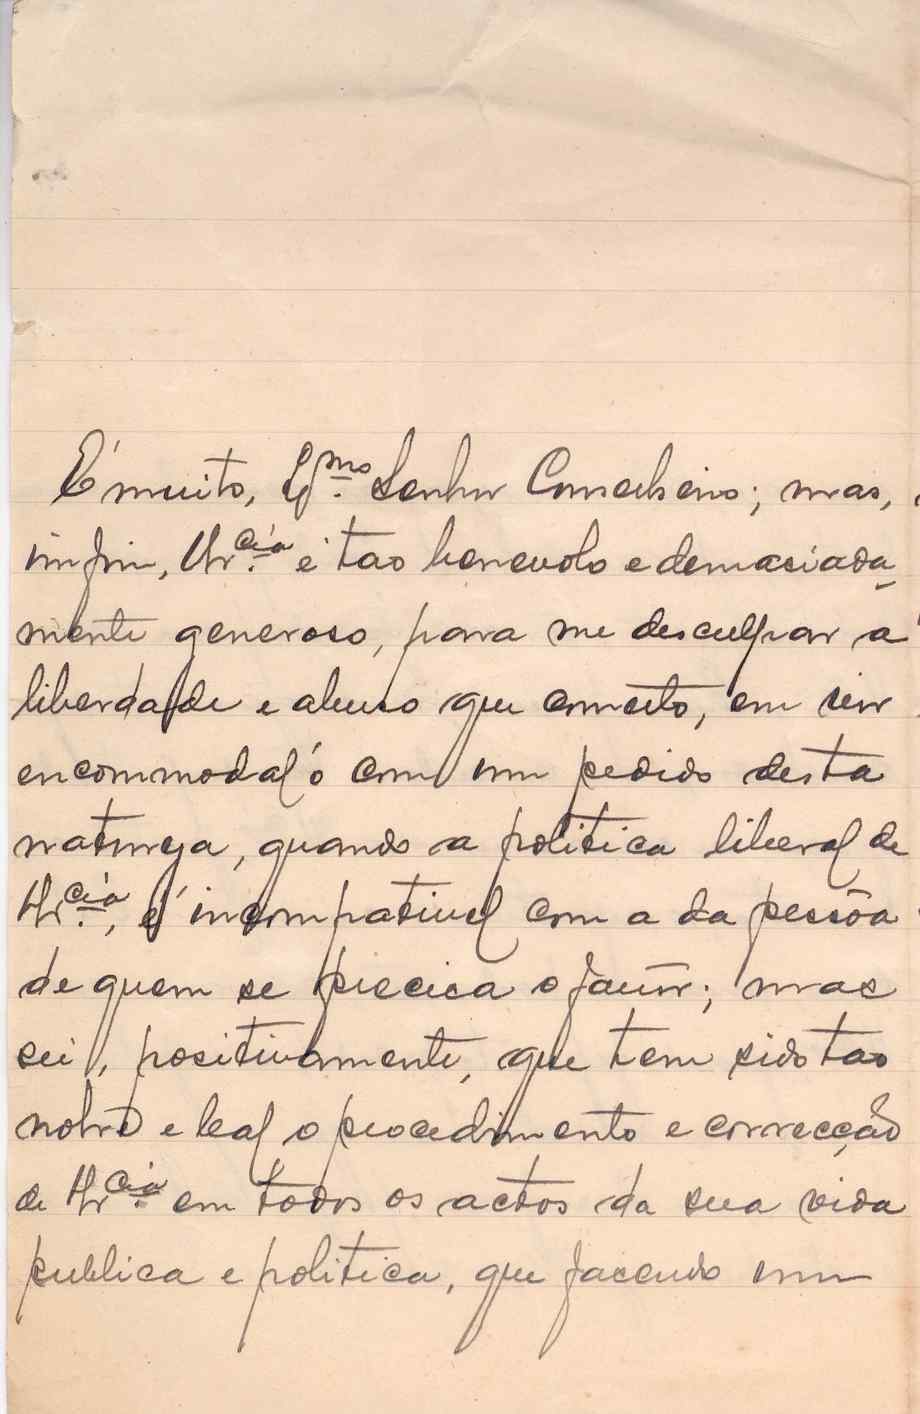 É muito, Ex.mo Senhor Conselheiro; mas,
imfim, V.Ex.cia é tao benevolo e demasiada-
mente generoso, para me desculpar a
liberdade e abuso que cometo, em vir
encommodal'ó com um pedido desta
natureza, quando a politica liberal de
V.Ex.cia, é incompativel com a da pessôa
de quem se precisa o favôr; mas
sei, positivamente, que tem sido tao
nobre e leal o procedimento e correcção
de V.Ex.cia em todos os actos da sua vida
publica e politica, que fasendo um